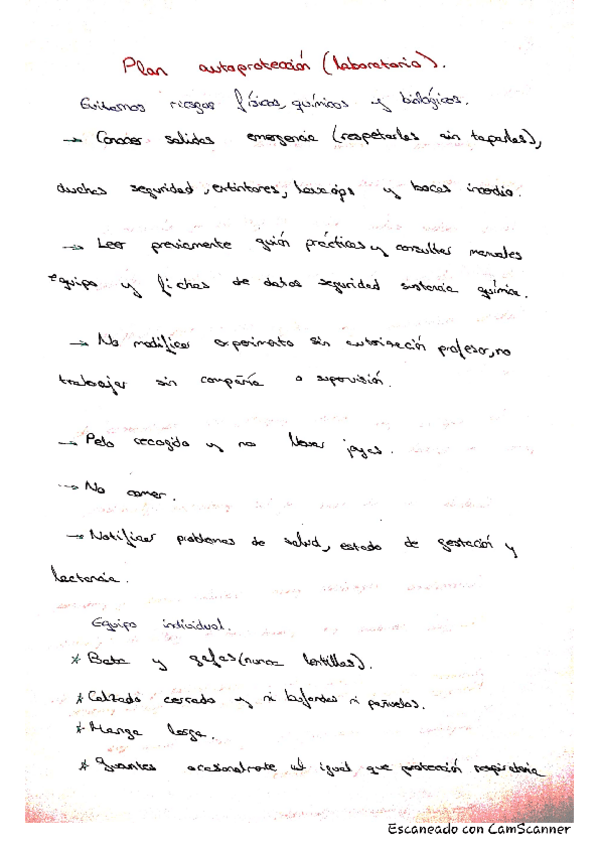 Plan autoprotección (laboratorio).
Evitamos riesgos físicos, químicos y biológicos.
→ Conocer salidas emergencia (respetarles sin taparles),
duchas seguridad, extintores, lavaojos y bocas incendio.
→ Leer previamente guión prácticas y consultar manuales
equipo y fichas de datos seguridad sustancia química.
→ No modificar experimento sin autorización profesor, no
trabajar sin compañía o supervisión.
→ Pelo recogido y no llevar joyas.
→ No comer.
→ Notificar problemas de salud, estado de gestación y
lactancia.
Equipo individual.
* Bata y gafas (nunca lentillas).
* Calzado cerrado y ni bufandas ni pañuelos.
* Manga larga.
* Guantes ocasionalmente al igual que protección respiratoria
Escaneado con CamScanner